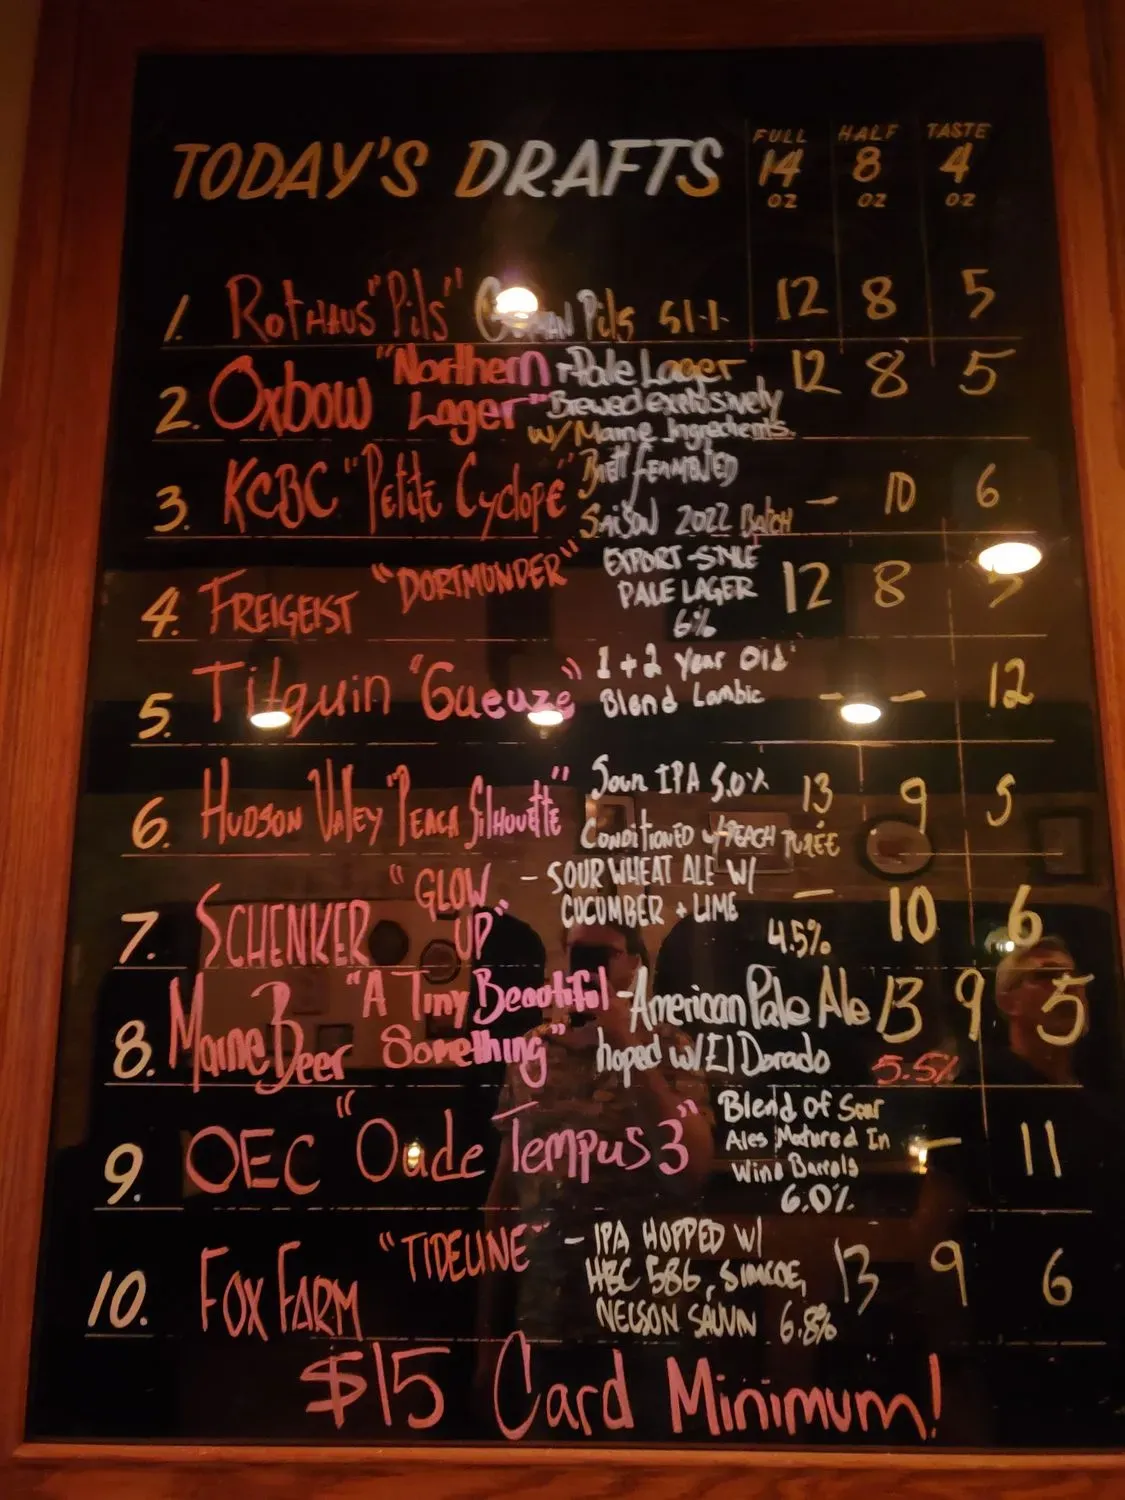 TODAY'S DRAFTS FULL 14 OZ HALF 8 OZ TASTE 4 OZ
1. Rothaus "Pils" German Pils 5.1% 12 8 5
2. Oxbow "Northern Lager" - Pale Lager 12 8 5
Brewed exclusively
w/ Maine Ingredients.
3. KCBC "Petite Cyclope" Brett fermented – 10 6
Saison 2022 Batch
4. FREIGEIST "DORTMUNDER" EXPORT-STYLE
PALE LAGER 12 8 5
6%
5. Tilquin "Gueuze" 1 + 2 Year Old
Blend Lambic – – 12
6. Hudson Valley "Peach Silhouette" Sour IPA 5.0% 13 9 5
Conditioned w/ PEACH PURÉE
7. SCHENKER "GLOW UP" - SOUR WHEAT ALE W/
CUCUMBER + LIME – 10 6
4.5%
8. Maine Beer "A Tiny Beautiful Something" - American Pale Ale 13 9 5
hoped w/ El Dorado 5.5%
9. OEC "Oude Tempus 3" Blend Of Sour
Ales Matured In – 11
Wine Barrels
6.0%
10. FOX FARM "TIDELINE" - IPA HOPPED W/
HBC 586, SIMCOE, 13 9 6
NELSON SAUVIN 6.8%
$15 Card Minimum!